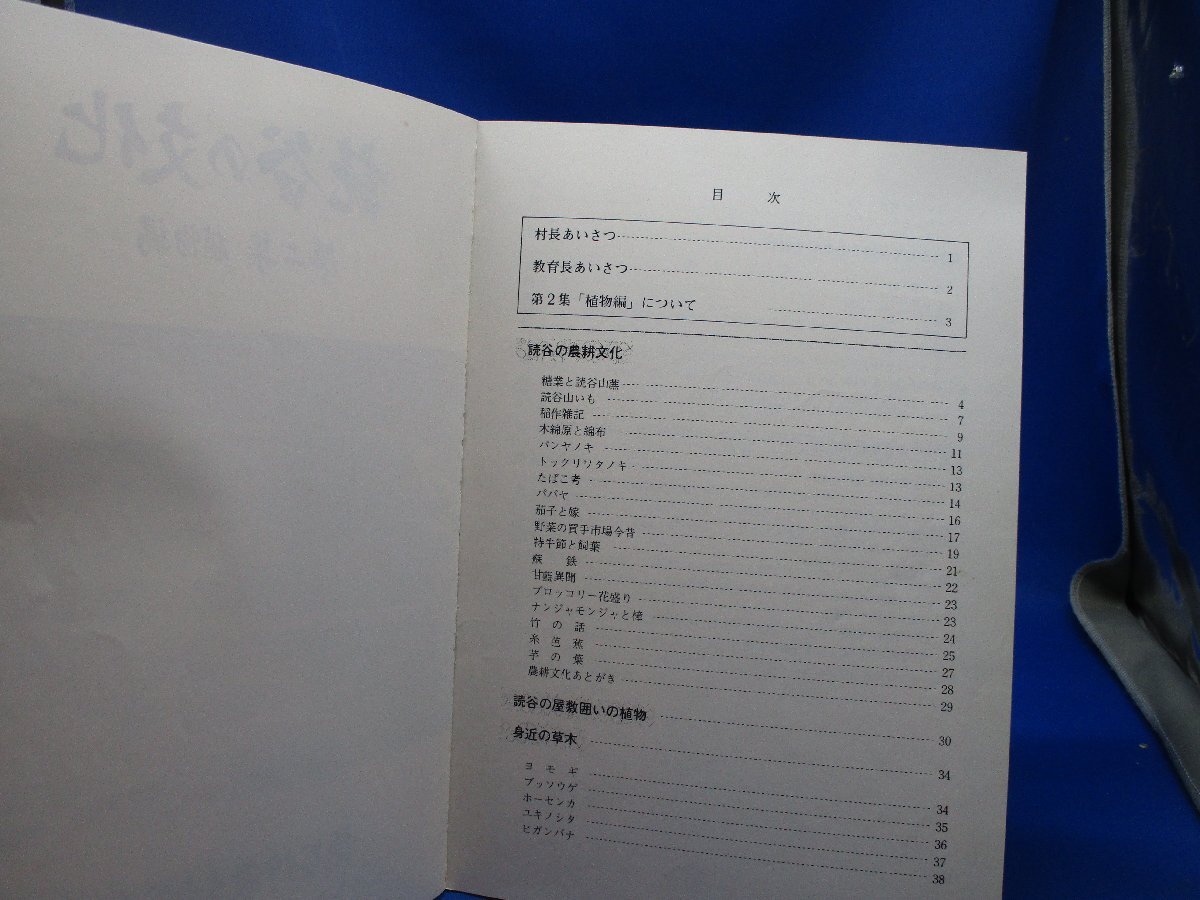 目 次
村長あいさつ 1
教育長あいさつ 2
第2集「植物編」について 3
読谷の農耕文化
糖業と読谷山蔗 4
読谷山いも 7
稲作雑記 9
木綿原と綿布 11
パンヤノキ 13
トックリワタノキ 13
たばこ考 14
パパヤ 16
茄子と嫁 17
野菜の買手市場今昔 19
特牛節と飼葉 21
蘇 鉄 22
甘藍異聞 23
ブロッコリー花盛り 23
ナンジャモンジャと檍 24
竹の話 25
糸芭蕉 27
芋の葉 28
農耕文化あとがき 29
読谷の屋敷囲いの植物 30
身近の草木 34
ヨモギ 34
ブッソウゲ 35
ホーセンカ 36
ユキノシタ 37
ヒガンバナ 38